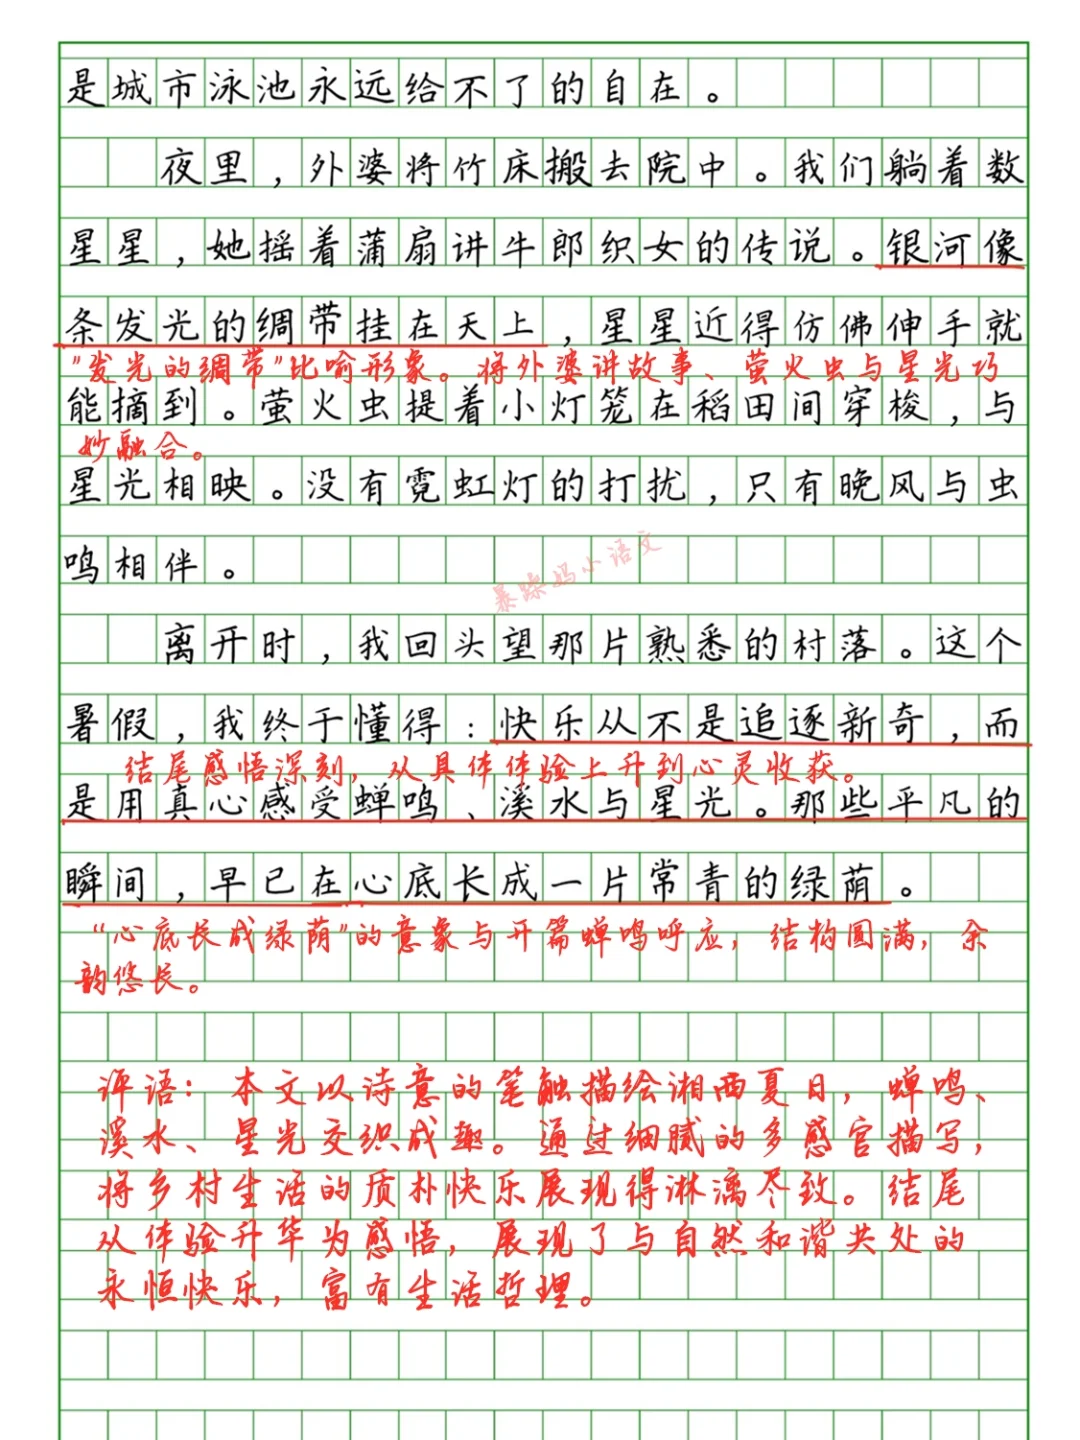 是城市泳池永远给不了的自在。
夜里，外婆将竹床搬去院中。我们躺着数
星星，她摇着蒲扇讲牛郎织女的传说。银河像
条发光的绸带挂在天上，星星近得仿佛伸手就
"发光的绸带"比喻形象。将外婆讲故事、萤火虫与星光巧
能摘到。萤火虫提着小灯笼在稻田间穿梭，与
妙融合。
星光相映。没有霓虹灯的打扰，只有晚风与虫
鸣相伴。
暴躁妈小语文
离开时，我回头望那片熟悉的村落。这个
暑假，我终于懂得：快乐从不是追逐新奇，而
结尾感悟深刻，从具体体验上升到心灵收获。
是用真心感受蝉鸣、溪水与星光。那些平凡的
瞬间，早已在心底长成一片常青的绿荫。
"心底长成绿荫"的意象与开篇蝉鸣呼应，结构圆满，余
韵悠长。
评语：本文以诗意的笔触描绘湘西夏日，蝉鸣、
溪水、星光交织成趣。通过细腻的多感官描写，
将乡村生活的质朴快乐展现得淋漓尽致。结尾
从体验升华为感悟，展现了与自然和谐共处的
永恒快乐，富有生活哲理。